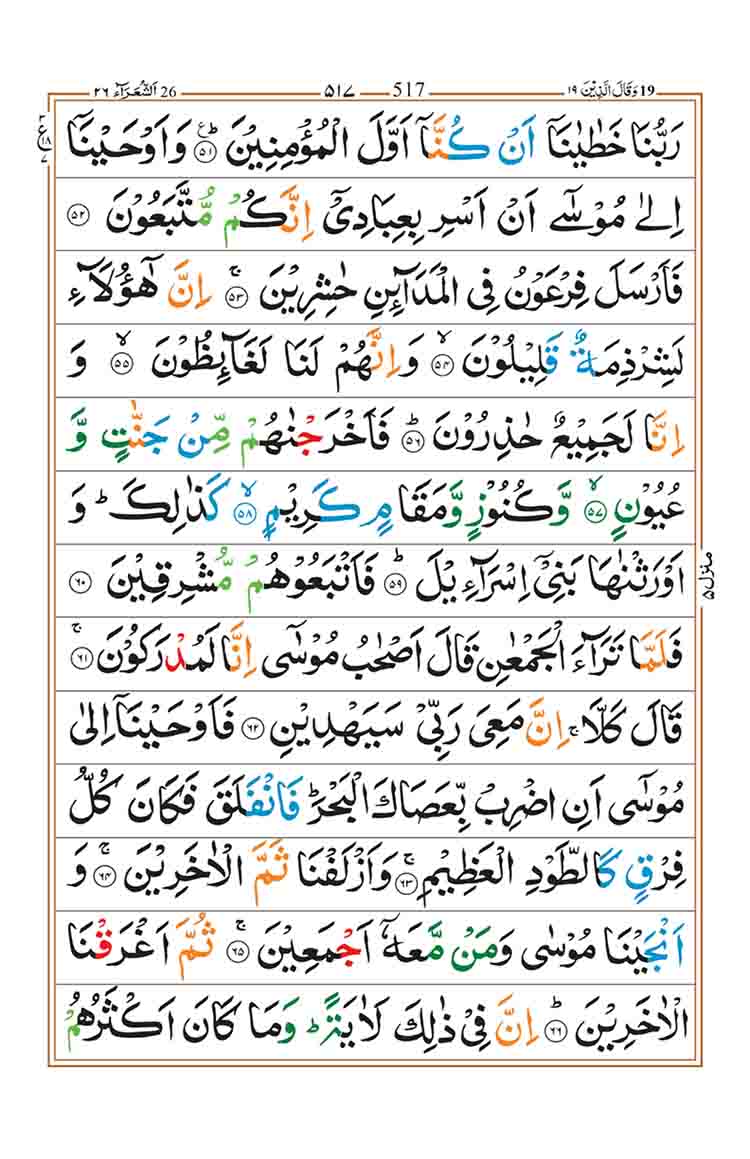 19 وَقَالَ الَّذِیْنَ ١٩ 517 ٥١٧ 26 اَلشُّعَرَآء ٢٦
رَبُّنَا خَطٰیٰنَاۤ اَنْ كُنَّاۤ اَوَّلَ الْمُؤْمِنِیْنَ ؕ۠ ﴿٥١﴾ وَاَوْحَیْنَاۤ
ع ١٨ ٧
اِلٰی مُوْسٰۤی اَنْ اَسْرِ بِعِبَادِیْۤ اِنَّكُمْ مُّتَّبَعُوْنَ ﴿٥٢﴾
فَاَرْسَلَ فِرْعَوْنُ فِی الْمَدَآىِٕنِ حٰشِرِیْنَ ۚ ﴿٥٣﴾ اِنَّ هٰۤؤُلَآءِ
لَشِرْذِمَةٌ قَلِیْلُوْنَ ۙ ﴿٥٤﴾ وَاِنَّهُمْ لَنَا لَغَآىِٕظُوْنَ ۙ ﴿٥٥﴾ وَ
اِنَّا لَجَمِیْعٌ حٰذِرُوْنَ ؕ ﴿٥٦﴾ فَاَخْرَجْنٰهُمْ مِّنْ جَنّٰتٍ وَّ
عُیُوْنٍ ۙ ﴿٥٧﴾ وَّكُنُوْزٍ وَّمَقَامٍ كَرِیْمٍ ۙ ﴿٥٨﴾ كَذٰلِكَ ؕ وَ
اَوْرَثْنٰهَا بَنِیْۤ اِسْرَآءِیْلَ ؕ ﴿٥٩﴾ فَاَتْبَعُوْهُمْ مُّشْرِقِیْنَ ﴿٦٠﴾
منزل ٥
فَلَمَّا تَرَآءَ الْجَمْعٰنِ قَالَ اَصْحٰبُ مُوْسٰۤی اِنَّا لَمُدْرَكُوْنَ ۚ ﴿٦١﴾
قَالَ كَلَّا ۚ اِنَّ مَعِیَ رَبِّیْ سَیَهْدِیْنِ ﴿٦٢﴾ فَاَوْحَیْنَاۤ اِلٰی
مُوْسٰۤی اَنِ اضْرِبْ بِّعَصَاكَ الْبَحْرَ ؕ فَانْفَلَقَ فَكَانَ كُلُّ
فِرْقٍ كَالطَّوْدِ الْعَظِیْمِ ۚ ﴿٦٣﴾ وَاَزْلَفْنَا ثَمَّ الْاٰخَرِیْنَ ۚ ﴿٦٤﴾ وَ
اَنْجَیْنَا مُوْسٰی وَمَنْ مَّعَهٗۤ اَجْمَعِیْنَ ۚ ﴿٦٥﴾ ثُمَّ اَغْرَقْنَا
الْاٰخَرِیْنَ ؕ ﴿٦٦﴾ اِنَّ فِیْ ذٰلِكَ لَاٰیَةً ؕ وَمَا كَانَ اَكْثَرُهُمْ